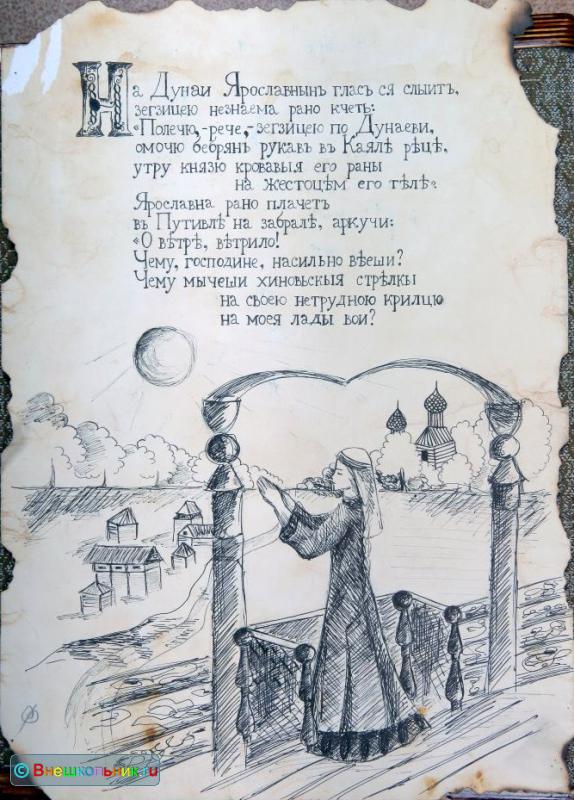 На Дунаи Ярославнынъ гласъ ся слыитъ,
зегзицею незнаема рано кчеть:
«Полечю,-рече,-зегзицею по Дунаеви,
омочю бебрянъ рукавъ въ Каялѣ рѣцѣ,
утру князю кровавыя его раны
на жестоцѣм его тѣлѣ».
Ярославна рано плачетъ
въ Путивлѣ на забралѣ, аркучи:
«О вѣтрѣ, вѣтрило!
Чему, господине, насильно вѣеши?
Чему мычеши хиновьскыя стрѣлкы
на своею нетрудною крилцю
на моея лады вои?
© Внешкольник.ru